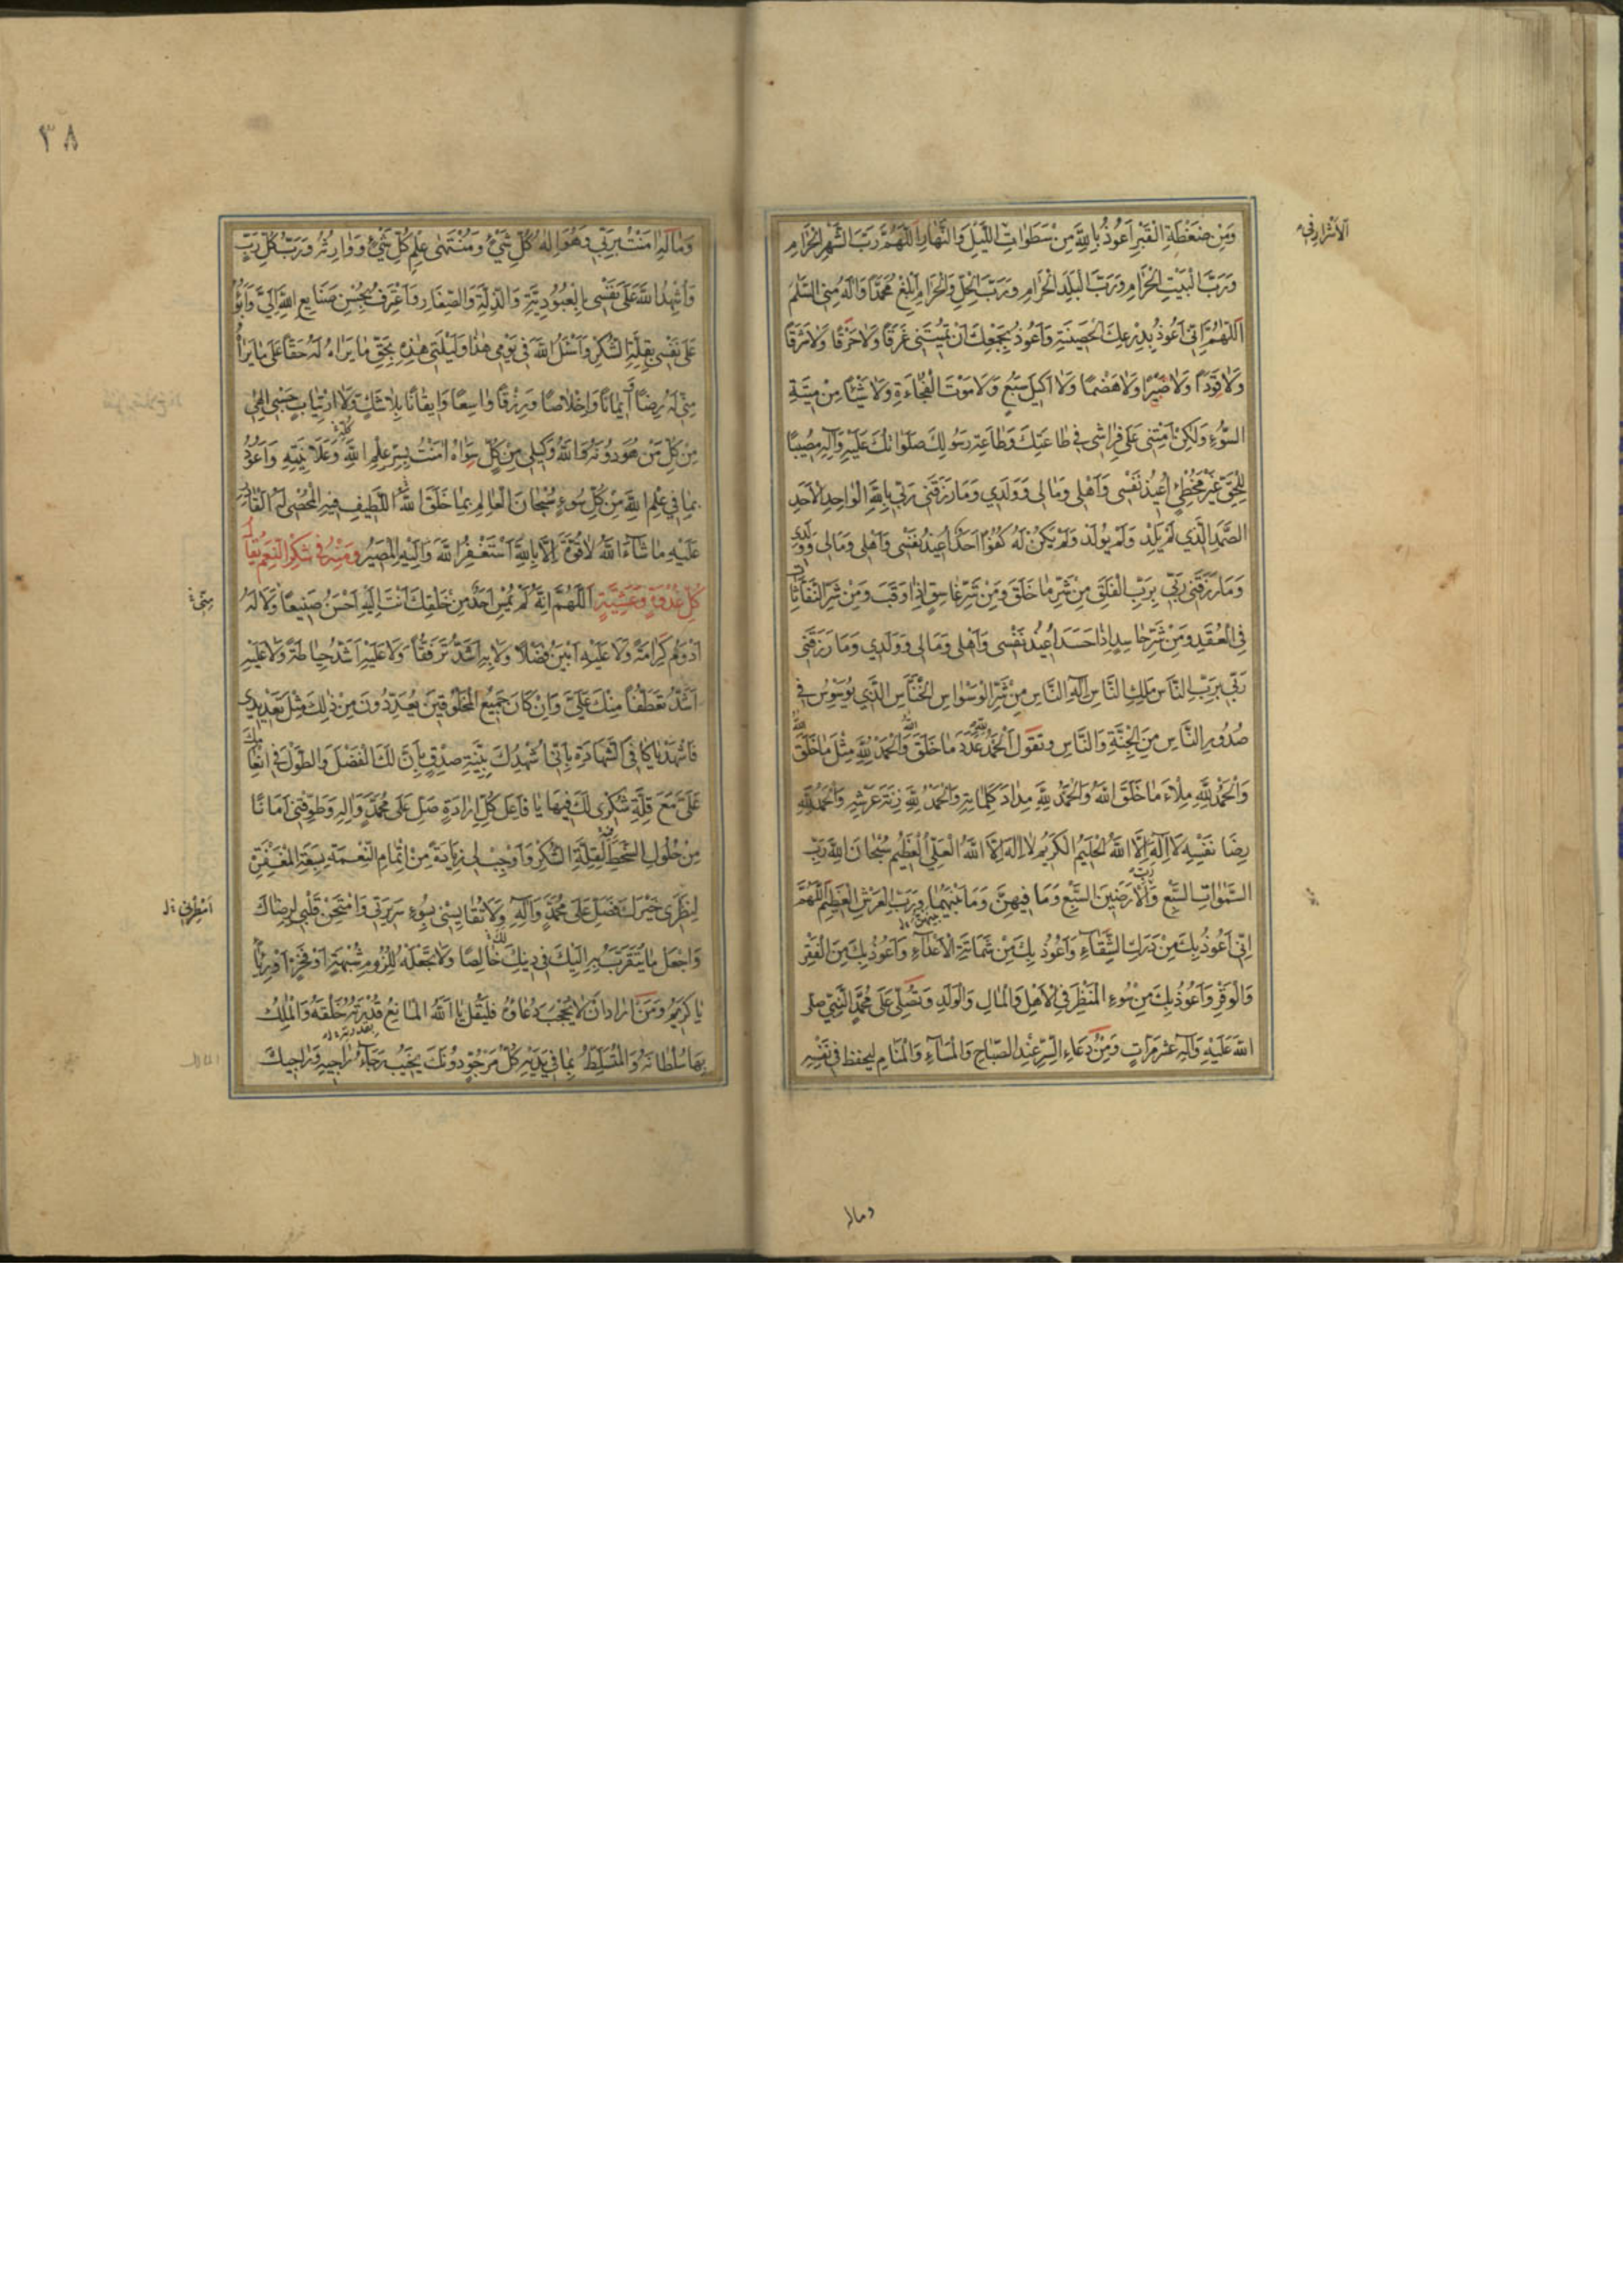 وَمِنْ ضَغْطَةِ الْقَبْرِ اَعُوذُ بِاللّٰهِ مِنْ سَطَوَاتِ اللَّيْلِ وَالنَّهَارِ اَللّٰهُمَّ رَبَّ الشَّهْرِ الْحَرَامِ
وَرَبَّ الْبَيْتِ الْحَرَامِ وَرَبَّ الْبَلَدِ الْحَرَامِ وَرَبَّ الْحِلِّ وَالْحَرَامِ اَبْلِغْ مُحَمَّدًا وَآلَهُ مِنِّي السَّلَمَ
اَللّٰهُمَّ اِنِّي اَعُوذُ بِدِرْعِكَ الْحَصِينَةِ وَاَعُوذُ بِجَمْعِكَ اَنْ تُمِيتَنِي غَرَقًا وَلَا حَرَقًا وَلَا شَرَقًا
وَلَا قَوَدًا وَلَا صَبْرًا وَلَا هَضْمًا وَلَا اَكِيلَ سَبُعٍ وَلَا مَوْتَ الْفُجَاءَةِ وَلَا شَيْئًا مِنْ مِيتَةِ
السَّوْءِ وَلٰكِنْ اَمِتْنِي عَلَى فِرَاشِي فِي طَاعَتِكَ وَطَاعَةِ رَسُولِكَ صَلَوَاتُكَ عَلَيْهِ وَآلِهِ مُصِيبًا
لِلْحَقِّ غَيْرَ مُخْطِئٍ اُعِيذُ نَفْسِي وَاَهْلِي وَمَالِي وَوَلَدِي وَمَا رَزَقَنِي رَبِّي بِاللّٰهِ الْوَاحِدِ الْاَحَدِ
الصَّمَدِ الَّذِي لَمْ يَلِدْ وَلَمْ يُولَدْ وَلَمْ يَكُنْ لَهُ كُفُوًا اَحَدٌ اُعِيذُ نَفْسِي وَاَهْلِي وَمَالِي وَوَلَدِي
وَمَا رَزَقَنِي رَبِّي بِرَبِّ الْفَلَقِ مِنْ شَرِّ مَا خَلَقَ وَمِنْ شَرِّ غَاسِقٍ اِذَا وَقَبَ وَمِنْ شَرِّ النَّفَّاثَاتِ
فِي الْعُقَدِ وَمِنْ شَرِّ حَاسِدٍ اِذَا حَسَدَ اُعِيذُ نَفْسِي وَاَهْلِي وَمَالِي وَوَلَدِي وَمَا رَزَقَنِي
رَبِّي بِرَبِّ النَّاسِ مَلِكِ النَّاسِ اِلٰهِ النَّاسِ مِنْ شَرِّ الْوَسْوَاسِ الْخَنَّاسِ الَّذِي يُوَسْوِسُ فِي
صُدُورِ النَّاسِ مِنَ الْجِنَّةِ وَالنَّاسِ وَتَقُولُ اَلْحَمْدُ لِلّٰهِ عَدَدَ مَا خَلَقَ اللّٰهُ وَالْحَمْدُ لِلّٰهِ مِثْلَ مَا خَلَقَ اللّٰهُ
وَالْحَمْدُ لِلّٰهِ مِلْءَ مَا خَلَقَ اللّٰهُ وَالْحَمْدُ لِلّٰهِ مِدَادَ كَلِمَاتِهِ وَالْحَمْدُ لِلّٰهِ زِنَةَ عَرْشِهِ وَالْحَمْدُ لِلّٰهِ
رِضَا نَفْسِهِ لَا اِلٰهَ اِلَّا اللّٰهُ الْحَلِيمُ الْكَرِيمُ لَا اِلٰهَ اِلَّا اللّٰهُ الْعَلِيُّ الْعَظِيمُ سُبْحَانَ اللّٰهِ رَبِّ
السَّمٰوَاتِ السَّبْعِ وَرَبِّ الْاَرَضِينَ السَّبْعِ وَمَا فِيهِنَّ وَمَا بَيْنَهُمَا وَرَبِّ الْعَرْشِ الْعَظِيمِ اَللّٰهُمَّ
اِنِّي اَعُوذُ بِكَ مِنْ دَرَكِ الشَّقَاءِ وَاَعُوذُ بِكَ مِنْ شَمَاتَةِ الْاَعْدَاءِ وَاَعُوذُ بِكَ مِنَ الْفَقْرِ
وَالْوَقْرِ وَاَعُوذُ بِكَ مِنْ سُوءِ الْمَنْظَرِ فِي الْاَهْلِ وَالْمَالِ وَالْوَلَدِ وَتُصَلِّي عَلَى مُحَمَّدٍ النَّبِيِّ صلى
اللّٰه عَلَيْهِ وَآلِهِ عَشْرَ مَرَّاتٍ وَمِنْ دُعَاءِ السِّرِّ عِنْدَ الصَّبَاحِ وَالْمَسَاءِ وَالْمَنَامِ لِيُحفظ فِي نَفْسِهِ
وماله
٣٨
وَمَالِهِ اٰمَنْتُ بِرَبِّي وَهُوَ اِلٰهُ كُلِّ شَيْءٍ وَمُنْتَهَى عِلْمِ كُلِّ شَيْءٍ وَوَارِثُهُ وَرَبُّ كُلِّ رَبٍّ
وَاُشْهِدُ اللّٰهَ عَلَى نَفْسِي بِالْعُبُودِيَّةِ وَالذِّلَّةِ وَالصَّغَارِ وَاَعْتَرِفُ بِحُسْنِ صَنَايِعِ اللّٰهِ اِلَيَّ وَاَبُوءُ
عَلَى نَفْسِي بِقِلَّةِ الشُّكْرِ وَاَسْئَلُ اللّٰهَ فِي يَوْمِي هٰذَا وَلَيْلَتِي هٰذِهِ بِحَقِّ مَا يَرَاهُ لَهُ حَقًّا عَلَى مَا يَرَاهُ
مِنِّي لَهُ رِضًا اِيمَانًا وَاِخْلَاصًا وَرِزْقًا وَاسِعًا وَاِيقَانًا بِلَا شَكٍّ وَلَا ارْتِيَابٍ حَسْبِي اِلٰهِي
مِنْ كُلِّ مَنْ هُوَ دُونَهُ وَاللّٰهُ وَكِيلِي مِنْ كُلِّ سِوَاهُ اٰمَنْتُ بِسِرِّ عِلْمِ اللّٰهِ وَعَلَانِيَتِهِ وَاَعُوذُ
بِمَا فِي عِلْمِ اللّٰهِ مِنْ كُلِّ سُوءٍ سُبْحَانَ الْعَالِمِ بِمَا خَلَقَ اللَّطِيفِ فِيهِ الْمُحْصِي لَهُ الْقَادِرِ
عَلَيْهِ مَا شَاءَ اللّٰهُ لَا قُوَّةَ اِلَّا بِاللّٰهِ اَسْتَغْفِرُ اللّٰهَ وَاِلَيْهِ الْمَصِيرُ وَمِنْهُ فِي شُكْرِ النِّعَمِ يُقَالُ
كُلَّ غُدْوَةٍ وَعَشِيَّةٍ اَللّٰهُمَّ اِنَّهُ لَمْ يُمْسِ اَحَدٌ مِنْ خَلْقِكَ اَنْتَ اِلَيْهِ اَحْسَنُ صَنِيعًا وَلَا لَهُ
اَدْوَمُ كَرَامَةً وَلَا عَلَيْهِ اَبْيَنُ فَضْلًا وَلَا بِهِ اَشَدُّ تَرَفُّقًا وَلَا عَلَيْهِ اَشَدُّ حِيَاطَةً وَلَا عَلَيْهِ
اَشَدُّ تَعَطُّفًا مِنْكَ عَلَيَّ وَاِنْ كَانَ جَمِيعُ الْمَخْلُوقِينَ يُعَدِّدُونَ مِنْ ذٰلِكَ مِثْلَ تَعْدِيدِي
فَاشْهَدْ يَا كَافِيَ الشَّهَادَةِ بِاَنِّي اُشْهِدُكَ بِنِيَّةِ صِدْقٍ بِاَنَّ لَكَ الْفَضْلَ وَالطَّوْلَ فِي اِنْعَامِكَ
عَلَيَّ مَعَ قِلَّةِ شُكْرِي لَكَ فِيهَا يَا فَاعِلَ كُلِّ اِرَادَةٍ صَلِّ عَلَى مُحَمَّدٍ وَآلِهِ وَطَوِّقْنِي اَمَانًا
مِنْ حُلُولِ السَّخَطِ لِقِلَّةِ الشُّكْرِ وَاَوْجِبْ لِي زِيَادَةً مِنْ اِتْمَامِ النِّعْمَةِ بِسَعَةِ الْمَغْفِرَةِ
خَيْرَكَ فَصَلِّ عَلَى مُحَمَّدٍ وَآلِهِ وَلَا تُقَايِسْنِي بِسُوءِ سَرِيرَتِي وَامْتَحِنْ قَلْبِي لِرِضَاكَ
وَاجْعَلْ مَا يُتَقَرَّبُ بِهِ اِلَيْكَ فِي دِينِكَ خَالِصًا وَلَا تَجْعَلْهُ لِلُزُومِ شُبْهَةٍ اَوْ فَخْرٍ اَوْ رِيَاءٍ
يَا كَرِيمُ وَمَنْ اَرَادَ اَنْ لَا يُحْجَبَ دُعَاؤُهُ فَلْيَقُلْ يَا اَللّٰهُ الْمَانِعُ قُدْرَتَهُ خَلْقَهُ وَالْمَلِكُ
بِهَا سُلْطَانَهُ وَالْمُتَسَلِّطُ بِمَا فِي يَدَيْهِ كُلُّ مَرْجُوٍّ دُونَكَ يُخَيِّبُ رَجَاءَ رَاجِيهِ وَرَاجِيكَ